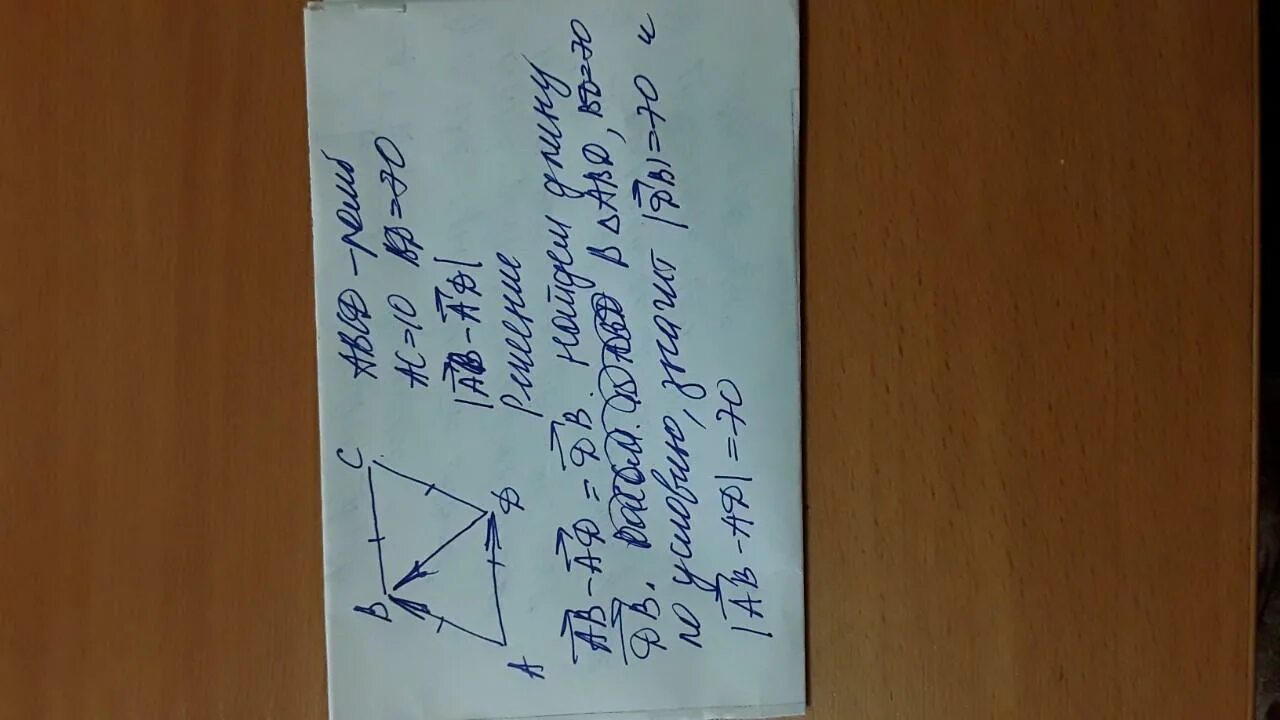 B
C
A
D
ABCD – ромб
AC = 10 BD = 70
|AB – AD|
Решение
AB – AD = DB. Найдем длину
DB. В △ ABD, BD = 70
по условию, значит |DB| = 70 и
|AB – AD| = 70